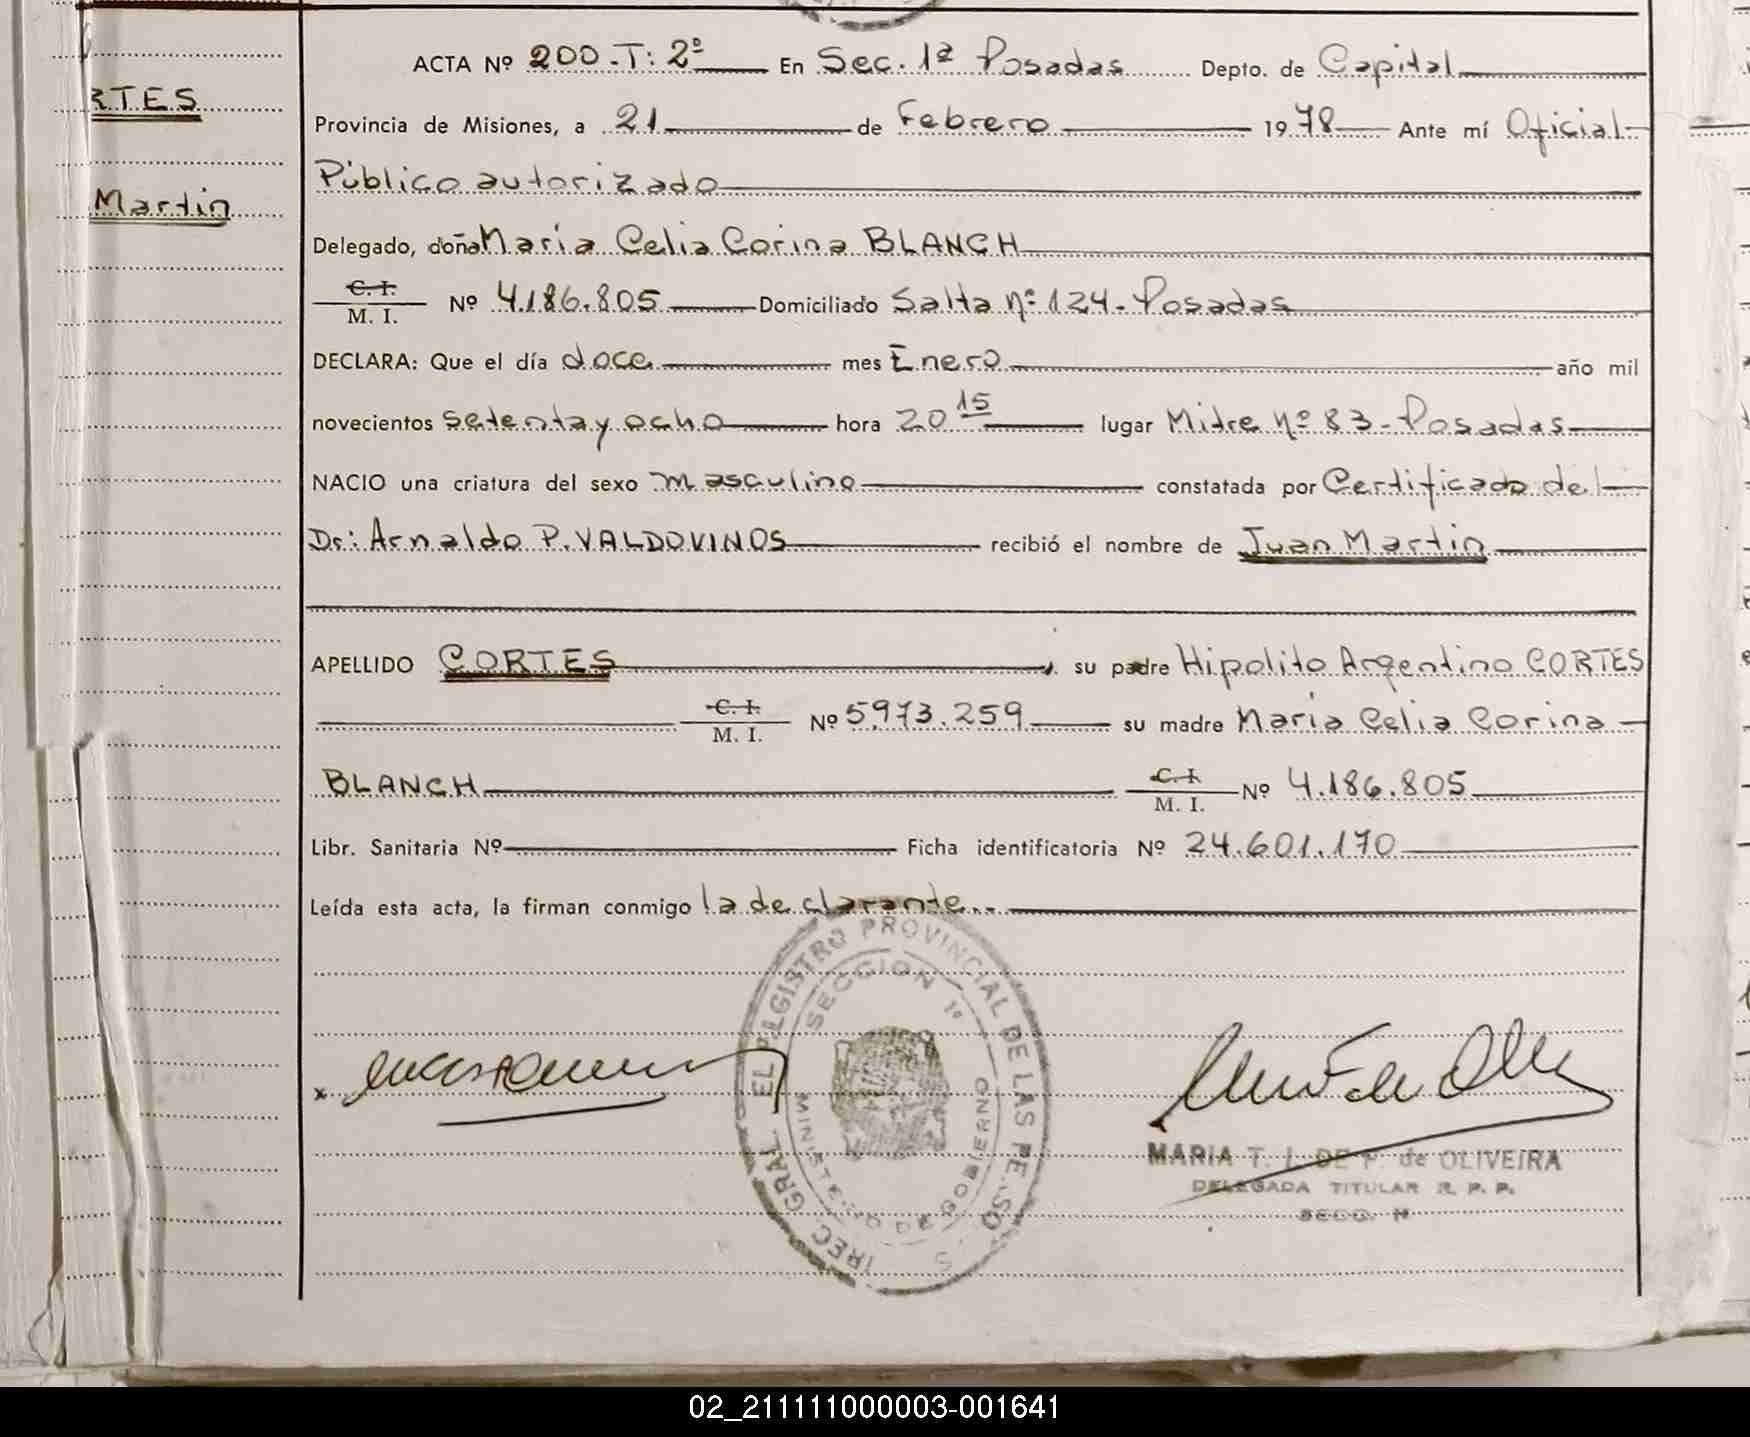 ACTA Nº 200-T: 2º En Sec. 1ª Posadas Depto. de Capital
RTES
Provincia de Misiones, a 21 de Febrero 1978 Ante mí Oficial
Público autorizado
Martin
Delegado, doña María Celia Corina BLANCH
C. I.
M. I. Nº 4.186.805 Domiciliado Salta nº 124 - Posadas
DECLARA: Que el día doce mes Enero año mil
novecientos setenta y ocho hora 20 15 lugar Mitre nº 83 - Posadas
NACIO una criatura del sexo masculino constatada por Certificado del
Dr: Arnaldo P. VALDOVINOS recibió el nombre de Juan Martin
APELLIDO CORTES su padre Hipolito Argentino CORTES
C. I.
M. I. Nº 5.973.259 su madre María Celia Corina
BLANCH C. I.
M. I. Nº 4.186.805
Libr. Sanitaria Nº Ficha identificatoria Nº 24.601.170
Leída esta acta, la firman conmigo la declarante..
DIREC. GRAL. DEL REGISTRO PROVINCIAL DE LAS PERSONAS
SECCION 1ª
MINISTERIO DE GOBIERNO
x
MARIA T. I. DE F. de OLIVEIRA
DELEGADA TITULAR R. P. P.
SECC. 1ª
02_211111000003-001641